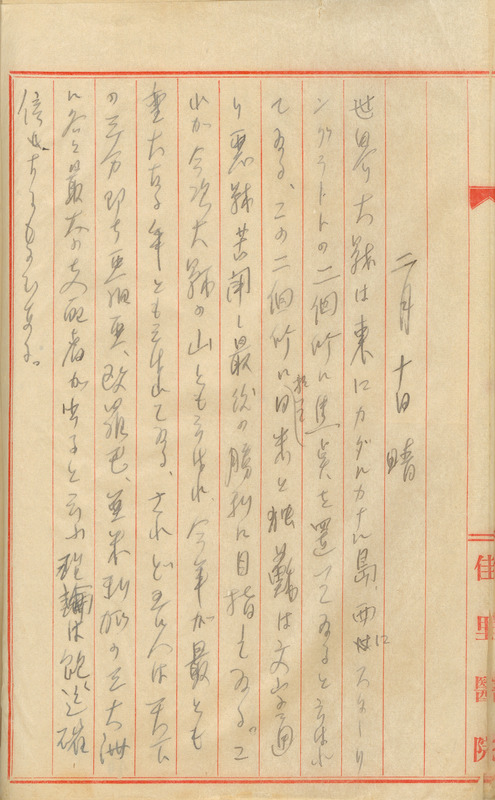 二月十日 晴
世界大戦は東にカダルカナル島、西にはスターリ
ングラードの二個所に焦点を置いてゐると云はれ
てゐる、この二個所に日米と独蘇は文字通
り悪戦苦闘し最後の勝利に目指してゐる。こ
れが今次大戦の山とも云はれ、今年が最とも
重大なる年とも云はれてゐる、されど吾人は天下
の三分即ち亜細亜、欧羅巴、亜米利加の三大洲
に各々最大の支配者が出ると云ふ理論は飽迄確
信せるものである。
佳里醫院